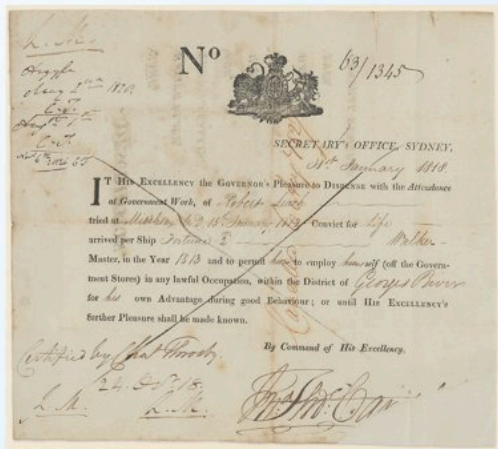 No 63/1345
SECRETARY'S OFFICE, SYDNEY,
31st January 1818.
IT IS HIS EXCELLENCY the GOVERNOR'S Pleasure to DISPENSE with the Attendance
at Government Work, of Robert
tried at Middlesex G.D. 15 January 1812 Convict for Life
arrived per Ship Fortune 2d Walker
Master, in the Year 1813 and to permit him to employ himself (off the Govern-
ment Stores) in any lawful Occupation, within the District of Georges River
for his own Advantage during good Behaviour; or until HIS EXCELLENCY'S
further Pleasure shall be made known.
By Command of His Excellency.
Certified by Chas Throsby.
24 18
L.M. L.M.
L.M.
Argyle
1820
C.T.
C.T.
Cancelled